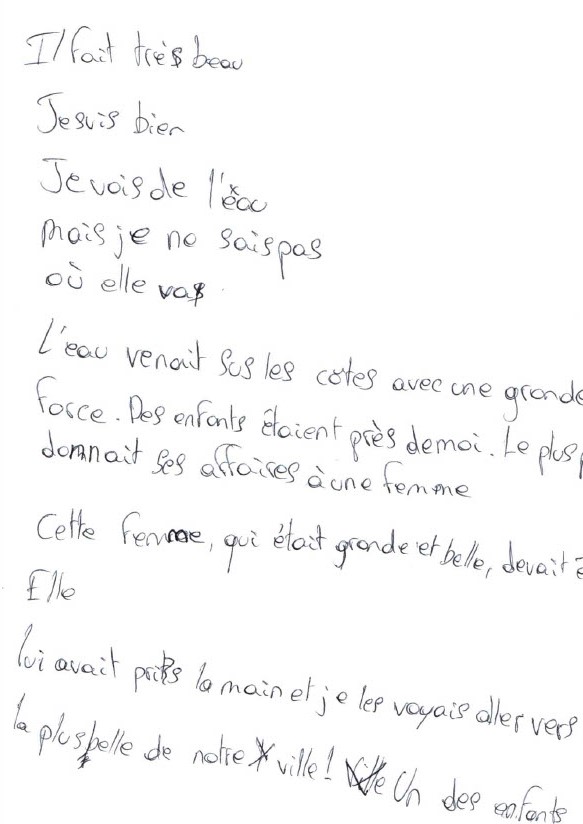 Il fait très beau
Je suis bien
Je vois de l'eau
mais je ne sais pas
où elle vas
L'eau venait sur les cotes avec une grande
force. Des enfants étaient près de moi. Le plus
donnait ses affaires à une femme
Cette femme, qui était grande et belle, devait
Elle
lui avait pris la main et je les voyais aller vers
la plus belle de notre ville! Un des enfants